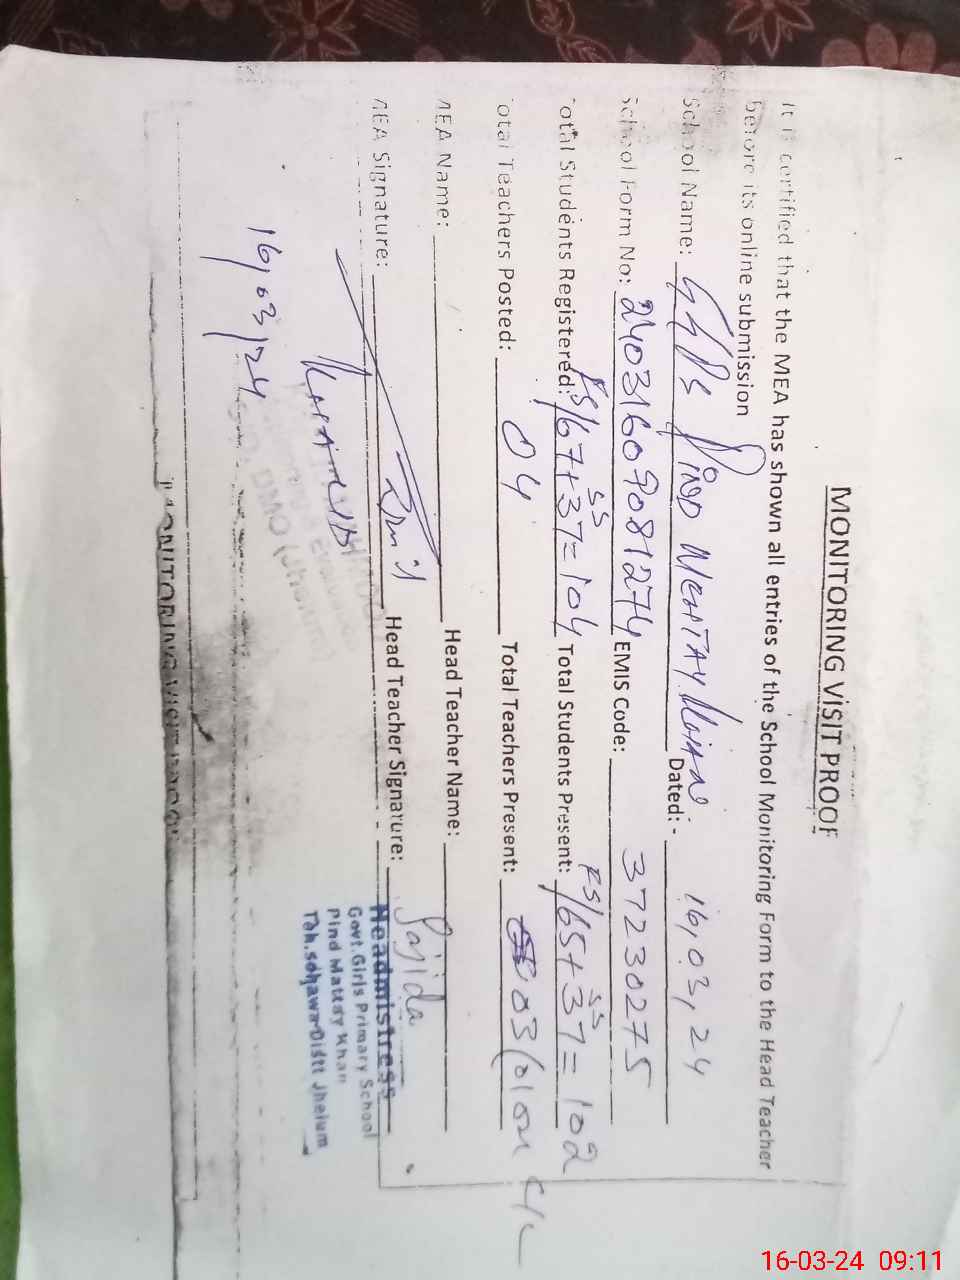 MONITORING VISIT PROOF
It is certified that the MEA has shown all entries of the School Monitoring Form to the Head Teacher
before its online submission
School Name: GGPS Pind Dated: - 16,03,24
School Form No: 24031609081274 EMIS Code: 37230275
Total Students Registered: RS/67+37=104 Total Students Present: RS/65+37=102
SS SS
Total Teachers Posted: 04 Total Teachers Present: 03 (01 on C/L
MEA Name: Head Teacher Name:
MEA Signature: Head Teacher Signature: Sajida
Headmistress
Govt.Girls Primary School
Pind Mattay Khan
Teh.sohawa-Distt Jhelum
DMO (Jhelum)
16,03,24
MONITORING VISIT PROOF
16-03-24 09:11